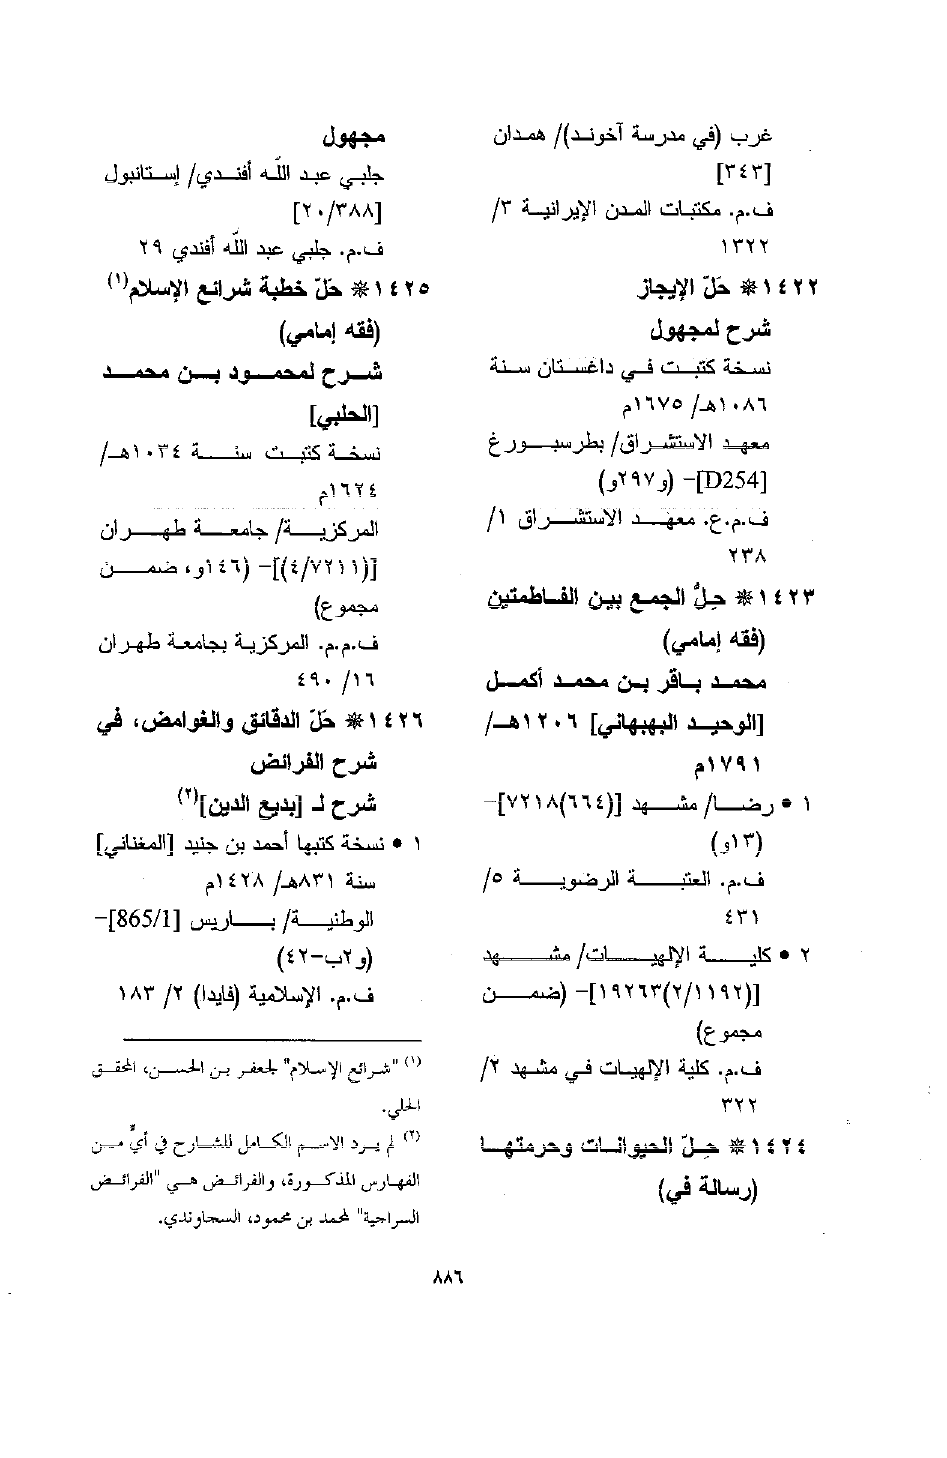 غرب (في مدرسة آخوند)/ همدان
[٣٤٣]
ف.م. مكتبات المدن الإيرانية ٣/
١٣٢٢
١٤٢٢* حَلّ الإيجاز
شرح لمجهول
نسخة كتبت في داغستان سنة
١٠٨٦هـ/ ١٦٧٥م
معهد الاستشراق/ بطرسبورغ
[D254]- (و٢٩٧و)
ف.م.ع. معهد الاستشراق ١/
٢٣٨
١٤٢٣* حِلُّ الجمع بين الفاطمتين
(فقه إمامي)
محمد باقر بن محمد أكمل
[الوحيد البهبهاني] ١٢٠٦هـ/
١٧٩١م
١ • رضا/ مشهد [(٦٦٤)٧٢١٨]-
(١٣و)
ف.م. العتبة الرضوية ٥/
٤٣١
٢ • كلية الإلهيات/ مشهد
[(٢/١١٩٢)١٩٢٦٣]- (ضمن
مجموع)
ف.م. كلية الإلهيات في مشهد ٢/
٣٢٢
١٤٢٤* حِلّ الحيوانات وحرمتها
(رسالة في)
مجهول
جلبي عبد اللّه أفندي/ إستانبول
[٢٠/٣٨٨]
ف.م. جلبي عبد اللّه أفندي ٢٩
١٤٢٥* حَلّ خطبة شرائع الإسلام(١)
(فقه إمامي)
شرح لمحمود بن محمد
[الحلبي]
نسخة كتبت سنة ١٠٣٤هـ/
١٦٢٤م
المركزية/ جامعة طهران
[(٤/٧٢١١)]- (١٤٦و، ضمن
مجموع)
ف.م.م. المركزية بجامعة طهران
١٦/ ٤٩٠
١٤٢٦* حَلّ الدقائق والغوامض، في
شرح الفرائض
شرح لـ [بديع الدين](٢)
١ • نسخة كتبها أحمد بن جنيد [المغناني]
سنة ٨٣١هـ/ ١٤٢٨م
الوطنية/ باريس [865/1]-
(و٢ب-٤٢)
ف.م. الإسلامية (فايدا) ٢/ ١٨٣
(١) "شرائع الإسلام" لجعفر بن الحسن، المحقق
الحلي.
(٢) لم يرد الاسم الكامل للشارح في أيٍّ من
الفهارس المذكورة، والفرائض هي "الفرائض
السراجية" لمحمد بن محمود، السجاوندي.
٨٨٦